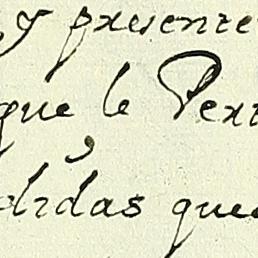 y presente
que le Pert
didas que